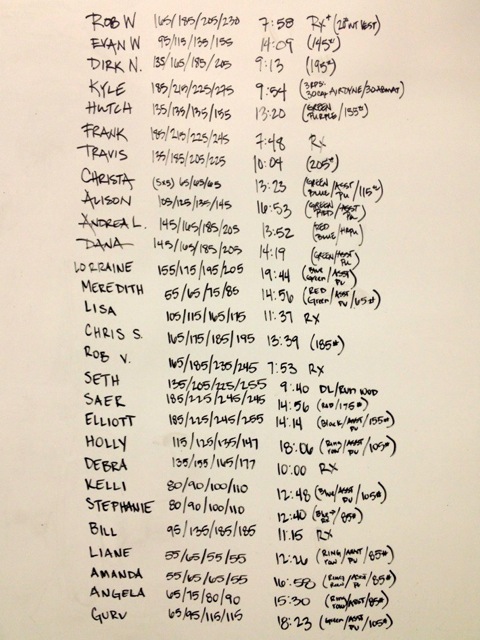 ROB W 165/185/205/230 7:58 RX+ (20# WT VEST)
EVAN W 95/115/135/155 14:09 (145#)
DIRK N. 135/165/185/205 9:13 (195#)
KYLE 185/215/225/275 9:54 (3 RDS: 30 CAL AIRDYNE/30 ABMAT)
HUTCH 135/135/135/155 13:20 (GREEN PURPLE/155#)
FRANK 185/215/225/245 7:48 RX
TRAVIS 135/185/205/225 10:04 (205#)
CHRISTA (5x5) 65/65/65 13:23 (GREEN BLUE/ASST PU/115#)
ALISON 105/125/135/145 16:53 (GREEN RED/ASST PU)
ANDREA L. 145/165/185/205 13:52 (RED BLUE/HRPU)
DANA 145/165/185/205 14:19 (GREEN/ASST PU)
LORRAINE 155/175/195/205 19:44 (Blue Green/ASST PU)
MEREDITH 55/65/75/85 14:56 (RED Green/ASST PU/65#)
LISA 105/115/165/175 11:37 RX
CHRIS S. 165/175/185/195 13:39 (185#)
ROB V. 165/185/235/245 7:53 RX
SETH 135/205/225/255 9:40 DL/RUN WOD
SAER 185/225/245/245 14:56 (RED/175#)
ELLIOTT 185/225/245/255 14:14 (Black/ASST PU/155#)
HOLLY 115/125/135/147 18:06 (Ring row/ASST PU/105#)
DEBRA 135/155/165/177 10:00 RX
KELLI 80/90/100/110 12:48 (Blue/ASST PU/105#)
STEPHANIE 80/90/100/110 12:40 (Blue/85#)
BILL 95/135/185/185 11:15 RX
LIANE 55/65/55/55 12:26 (RING row/ASST PU/85#)
AMANDA 55/65/65/55 16:58 (Ring Row/ASST PU/85#)
ANGELA 65/75/80/90 15:30 (Ring row/ASST/85#)
GURU 65/95/115/115 18:23 (Green/ASST PU/105#)